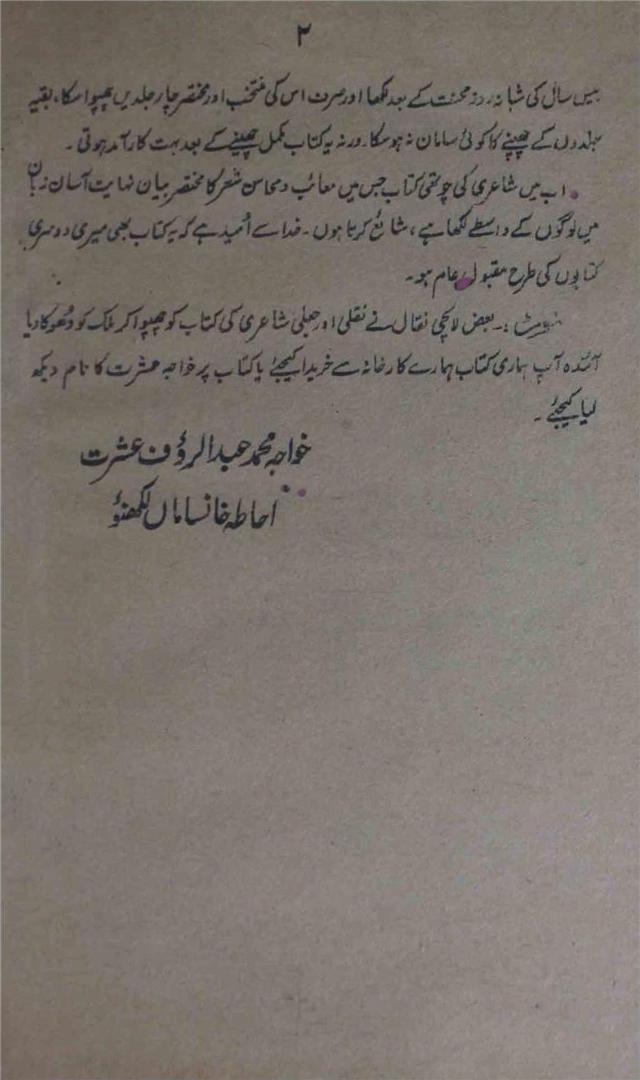 ۲
بیس سال کی شبانہ روز محنت کے بعد لکھا اور صرف اس کی منتخب اور مختصر چار جلدیں چھپوا سکا، بقیہ
جلدوں کے چھپنے کا کوئی سامان نہ ہو سکا۔ ورنہ یہ کتاب مکمل چھپنے کے بعد بہت کار آمد ہوتی۔
اب میں شاعری کی چوتھی کتاب جس میں معائب و محاسن شعر کا مختصر بیان نہایت آسان زبان
میں لوگوں کے واسطے لکھا ہے، شائع کرتا ہوں۔ خدا سے اُمید ہے کہ یہ کتاب بھی میری دوسری
کتابوں کی طرح مقبول عام ہو۔
نوٹ :۔ بعض لالچی نقال نے نقلی اور جعلی شاعری کی کتاب کو چھپوا کر ملک کو دُھوکا دیا
آئندہ آپ ہماری کتاب ہمارے کارخانہ سے خریدا کیجئے یا کتاب پر خواجہ عشرت کا نام دیکھ
لیا کیجئے۔
خواجہ محمد عبدالرؤف عشرت
احاطہ خانساماں لکھنؤ